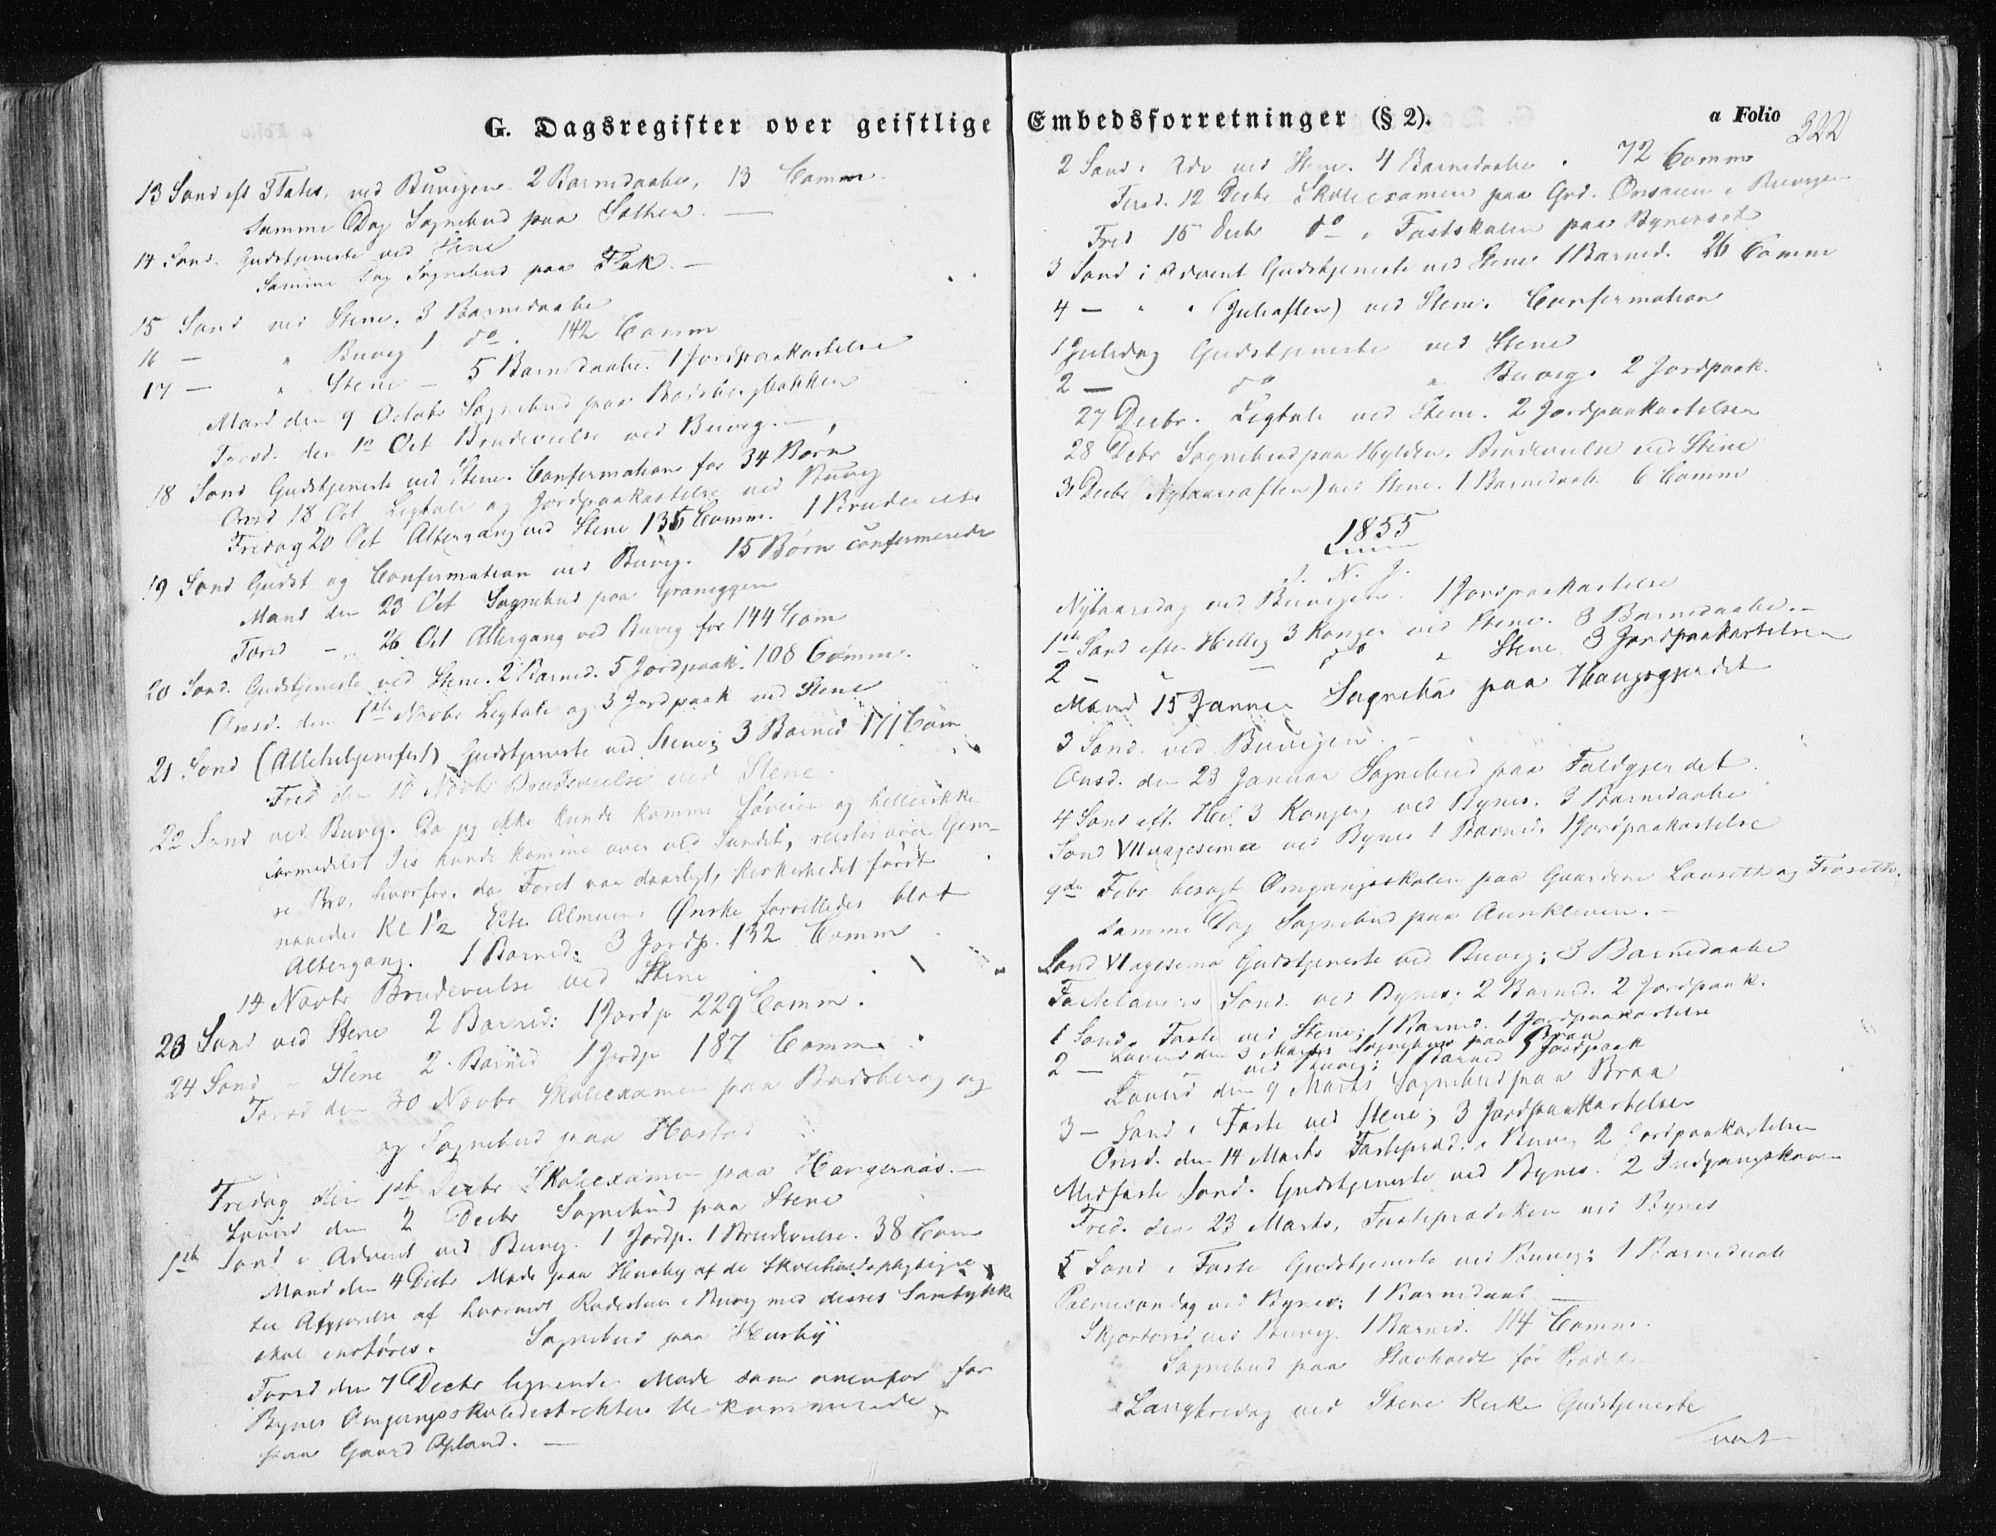 G. Dagsregister over geistlige
13 Sond eft 3Tatis, ved Buvigen. 2 Barnedaabe, 13 Comm.
Samme Dag Sognebud paa Solhen.
14 Sond. Gudstjeneste ved Stene
Samme Dag Sognebud paa
15 Sond ved Stene. 3 Barnedaabe
16 — " Buvig 1 do. 142 Comm
17 — " Stene — 5 Barnedaabe. 1 Jordpaakastelse
Mand den 9 Octobr Sognebud paa Bødsbergbakken
Torsd. den Oct Brudevielse ved Buvig. —
18 Sond Gudstjeneste ved Stene. Confirmation for 34 Børn
Onsd 18 Oct Ligtale og Jordpaakastelse ved Buvig
Fredag 20 Oct Altergang ved Stene 135 Comm. 1 Brudevielse
19 Sond Gudst og Confirmation ved Buvig. 15 Børn confirmerede
Mand den 23 Oct Sognebud paa Graneggen
Torsd — 26 Oct Altergang ved Buvig for 144 Com
20 Sond. Gudstjeneste ved Stene. 2 Barned. 5 Jordpaak. 108 Comm.
Onsd. den 1ste Novbr Ligtale og 3 Jordpaak ved Stene
21 Sond (Allehelgensfest) Gudstjeneste ved Stene; 3 Barned 171 Com
Fred den 10 Novbr Brudevielse ved Stene.
22 Sond ved Buvig. Da jeg ikke kunde komme Søveien og heller ikke
formedelst Iis kunde komme over ved Sundet, reistes over
Bro, hvorfor, da Føret var daarligt, Kirkestedet først
naaedes Kl 1½ Eftr Almuens Ønske forrettedes blot
Altergang. 1 Barned: 3 Jordp. 132 Comm
14 Novbr Brudevielse ved Stene
23 Sond ved Stene 2 Barned: 1 Jordp 229 Comm.
24 Sond — Stene 2 Barned 1 Jordp 187 Comm.
Torsd den 30 Novbr Skoleexamen paa Bødsberg og
og Sognebud paa Hostad
Fredag den 1ste Decbr Skoleexamen paa Hangeraas. —
Løverd den 2 Decbr Sognebud paa Stene
1ste Sond i Advent ved Buvig. 1 Jordp. 1 Brudevielse. 38 Com
Mand den 4 Decbr Møde paa Huusby af de Skoleholdspligtige
til Afgjørelse af hvorvidt i Buvig med deres Samtykke
skal indføres. Sognebud paa Huusby
Torsd den 7 Decbr lignende Møde som ovenfor for
Bynes Omgangsskoledistrikters Vedkommende
paa Gaard Opland. —
Embedsforretninger (§ 2).
a Folio
322
2 Sond i Adv ved Stene. 4 Barnedaabe. 72 Comm
Tirsd. 12 Decbr Skoleexamen paa Grd. Onsøien i Buvigen
Fred 15 Decbr do i Fastskolen paa Byneset
3 Sond i Advent Gudstjeneste ved Stene 1 Barned. 26 Comm
4 — " " (Juleaften) ved Stene. Confirmation
1 Juledag Gudstjeneste ved Stene
2 — do " Buvig. 2 Jordpaak.
27 Decbr. Ligtale ved Stene. 2 Jordpaakastelser
28 Debr Sognebud paa Hylden. Brudevielse ved Stene
31 Decbr Nytaarsaften) ved Stene. 1 Barnedaab 6 Comm
1855
I. N. J.
Nytaarsdag ved Buvigen. 1 Jordpaakastelse
1ste Sond efter Hellig 3 Konger ved Stene. 3 Barnedaabe. —
2 — " — do " Stene 3 Jordpaakastelser
Mand 15 Januar Sognebud paa Haugsgjerdet
3 Sond. ved Buvigen. —
Onsd. den 23 Januar Sognebud paa Foldgjerdet
4 Sond eft. Hel. 3 Konger, ved Bynes. 3 Barnedaabe
Sond ved Bynes 1 Barned. 1 Jordpaakastelse
9de Febr besøgt Omgangsskolen paa Gaardene og
samme Dag Sognebud paa Aunkleven. —
Sond Gudstjeneste ved Buvig; 3 Barnedaabe
Fastelavns Sond. ved Bynes; 2 Barned. 2 Jordpaak.
1 Sond i Faste ved Stene; 1 Barned. 1 Jordpaakastelse
Løverd den 3 Marts Sognebud paa Braa
2 — ved Buvig; 1 Barned Jordpaak
Løverd den 9 Marts Sognebud paa Braa
3 — Sond i Faste ved Stene; 3 Jordpaakastelser
Onsd. den 14 Marts Fastepræd. i Buvig 2 Jordpaakastelser
Midfaste Sond. Gudstjeneste ved Bynes. 2 Indgangskoner
Fred. den 23 Marts, Fasteprædiken ved Bynes
5 Sond i Faste Gudstjeneste ved Buvig; 1 Barnedaab
Palmesøndag ved Bynes; 1 Barnedaab —
Skjærtorsd ved Buvig. 1 Barned. 114 Comm.
Sognebud paa før
Langfredag ved Stene Kirke Gudstjeneste